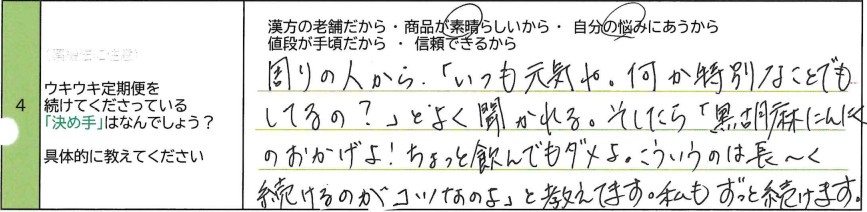 漢方の老舗だから・商品が素晴らしいから・ 自分の悩みにあうから
値段が手頃だから ・ 信頼できるから
4
ウキウキ定期便を
続けてくださっている
「決め手」はなんでしょう?
具体的に教えてください
周りの人から、「いつも元気ね。何か特別なことでも
してるの?」とよく聞かれる。そしたら「黒胡麻にんにく
のおかげよ!ちょっと飲んでもダメよ。こういうのは長〜く
続けるのがコツなのよ」と教えてます。私もずっと続けます。